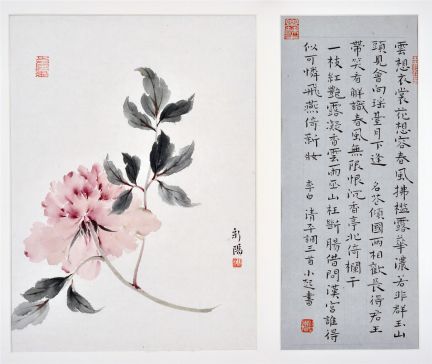 雲想衣裳花想容春風拂檻露華濃若非群玉山
頭見會向瑤臺月下逢 名花傾國兩相歡長得君王
帶笑看解識春風無限恨沉香亭北倚欄干
一枝紅艷露凝香雲雨巫山枉斷腸借問漢宮誰得
似可憐飛燕倚新妝 李白 清平調三首 小書